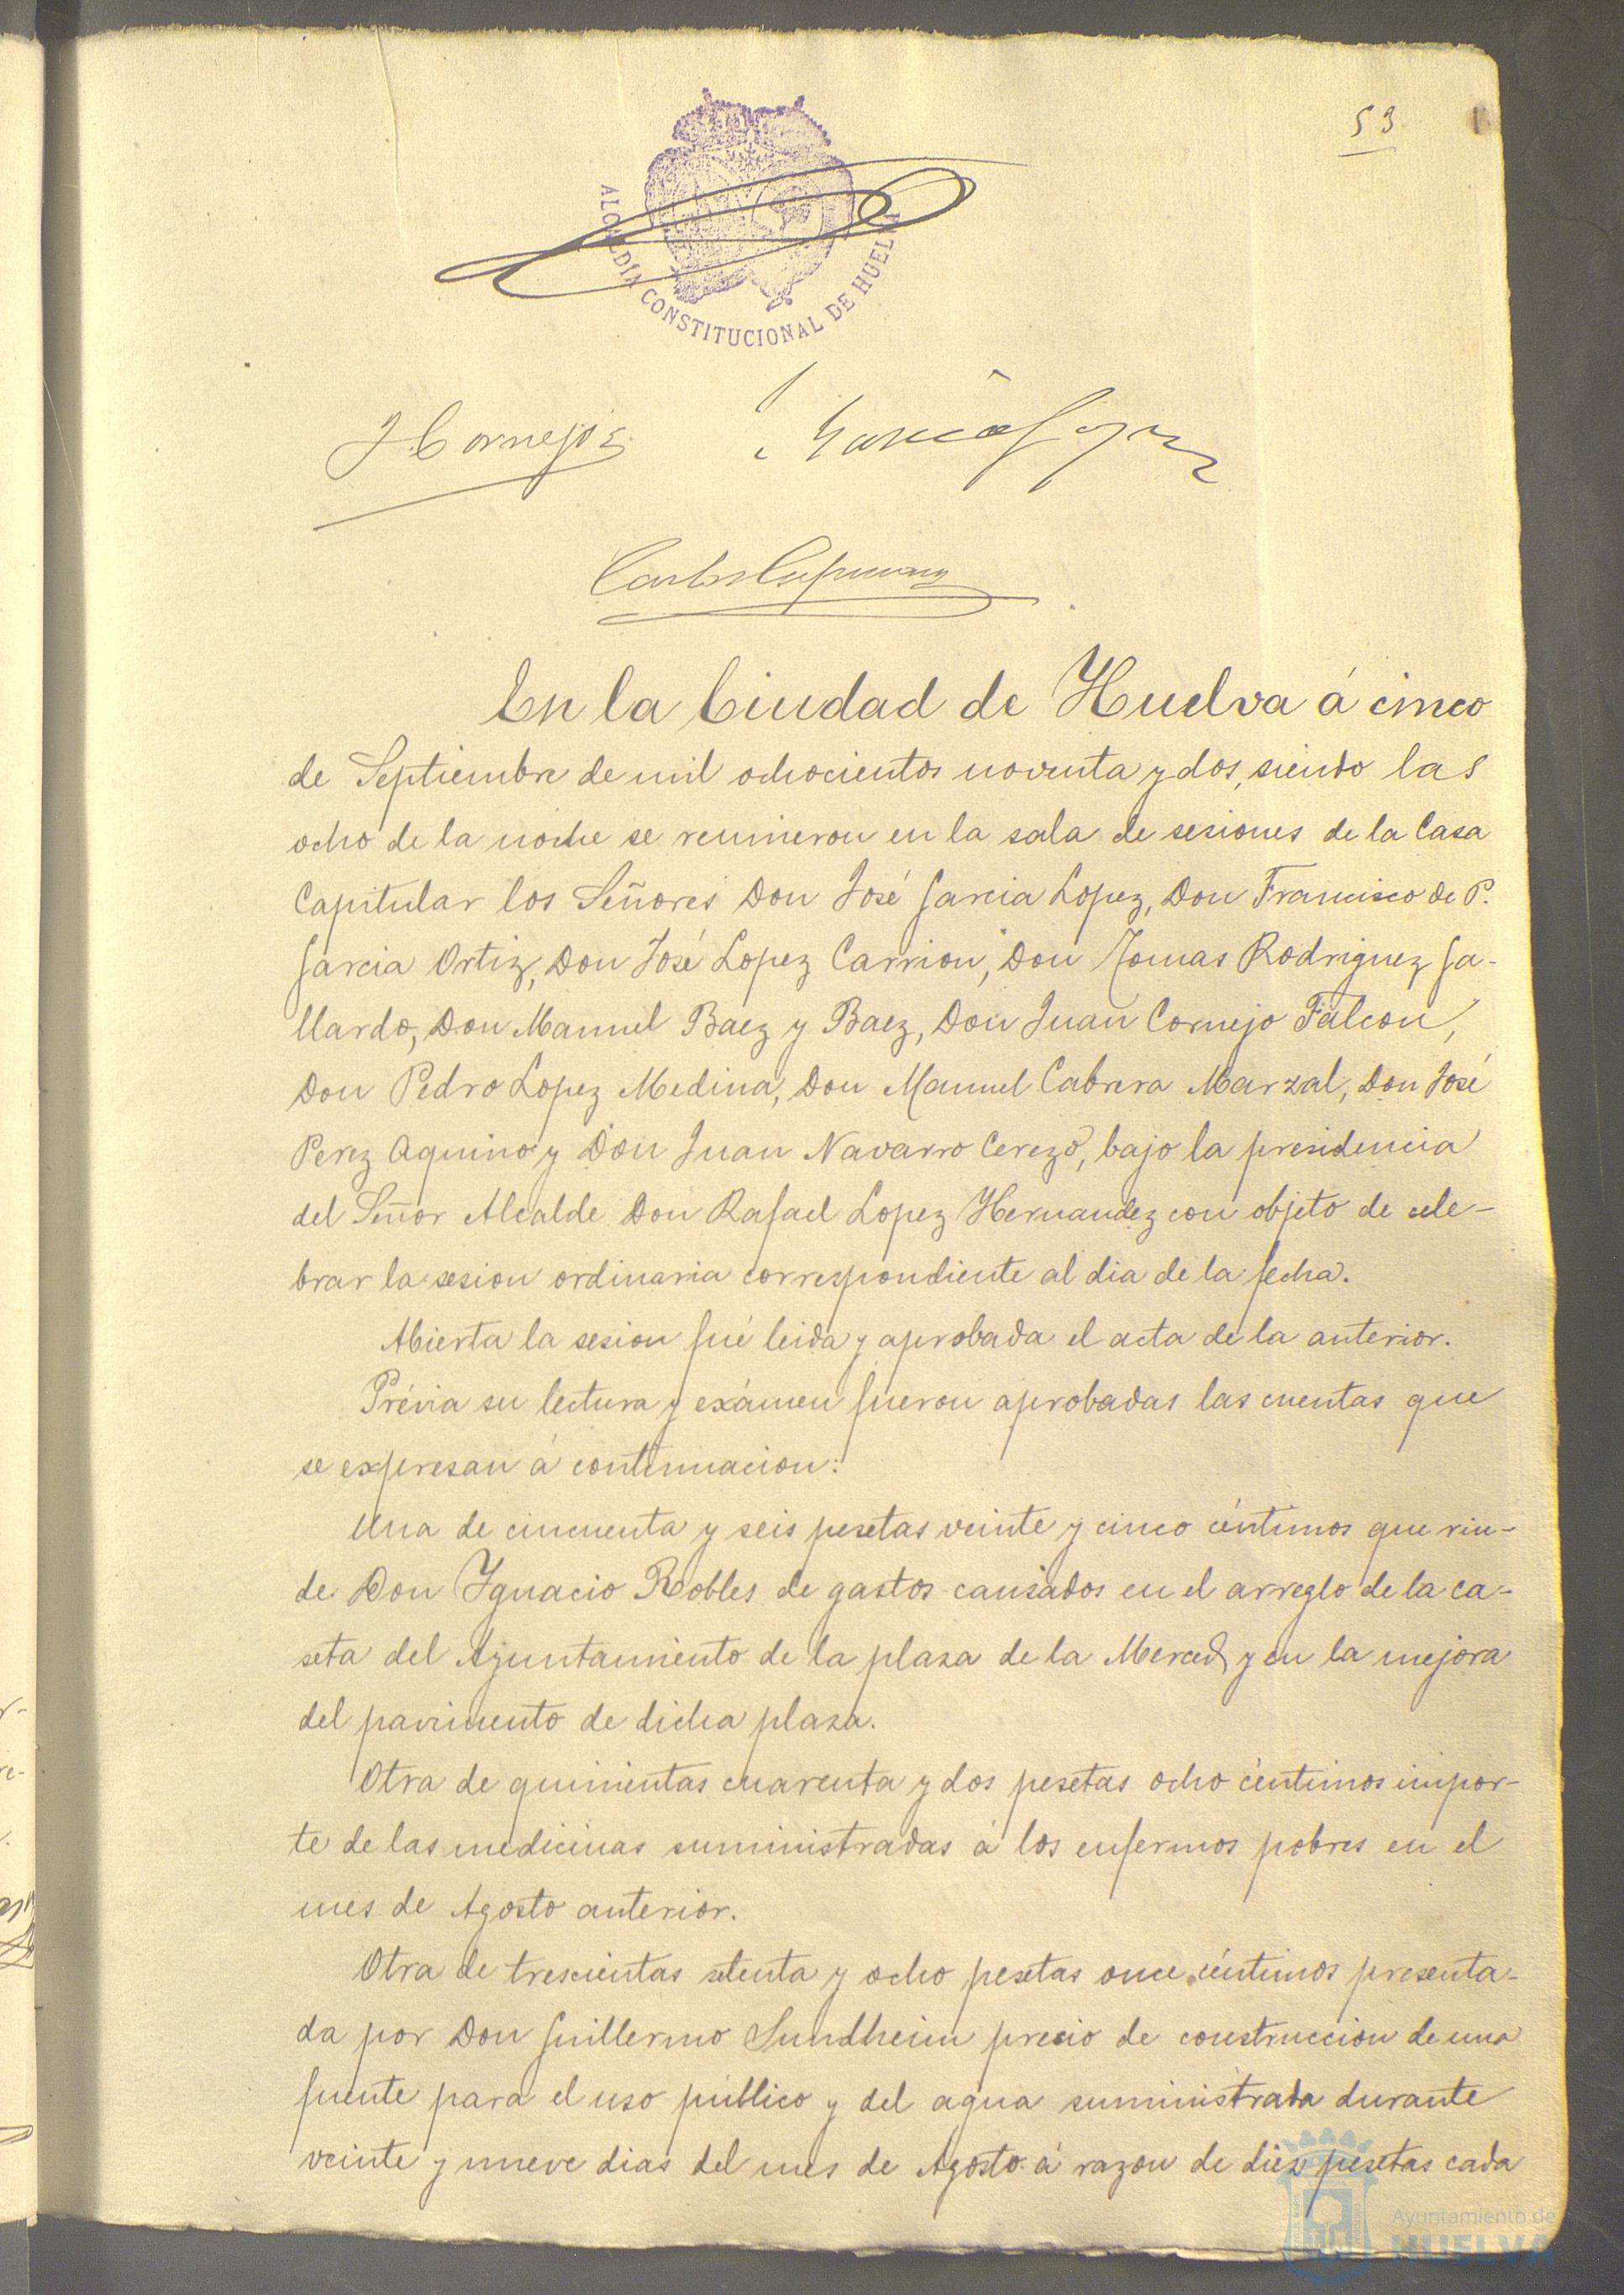 53
ALCALDÍA CONSTITUCIONAL DE HUELVA
J Cornejo
Garcia Lopez
En la Ciudad de Huelva á cinco
de Septiembre de mil ochocientos noventa y dos, siendo las
ocho de la noche se reunieron en la sala de sesiones de la Casa
Capitular los Señores Don José Garcia Lopez, Don Francisco de P.
Garcia Ortiz, Don José Lopez Carrion, Don Tomas Rodriguez Ga-
llardo, Don Manuel Baez y Baez, Don Juan Cornejo Falcon,
Don Pedro Lopez Medina, Don Manuel Cabrera Marzal, Don José
Perez Aquino y Don Juan Navarro Cerezo, bajo la presidencia
del Señor Alcalde Don Rafael Lopez Hernandez con objeto de cele-
brar la sesion ordinaria correspondiente al dia de la fecha.
Abierta la sesion fué leida y aprobada el acta de la anterior.
Prévia su lectura y exámen fueron aprobadas las cuentas que
se expresan á continuacion:
Una de cincuenta y seis pesetas veinte y cinco céntimos que rin-
de Don Ygnacio Robles de gastos causados en el arreglo de la ca-
seta del Ayuntamiento de la plaza de la Merced y en la mejora
del pavimento de dicha plaza.
Otra de quinientas cuarenta y dos pesetas ocho céntimos impor-
te de las medicinas suministradas á los enfermos pobres en el
mes de Agosto anterior.
Otra de trescientas setenta y ocho pesetas once céntimos presenta-
da por Don Guillermo Sundheim precio de construccion de una
fuente para el uso público y del agua suministrada durante
veinte y nueve dias del mes de Agosto á razon de diez pesetas cada
Ayuntamiento de
HUELVA